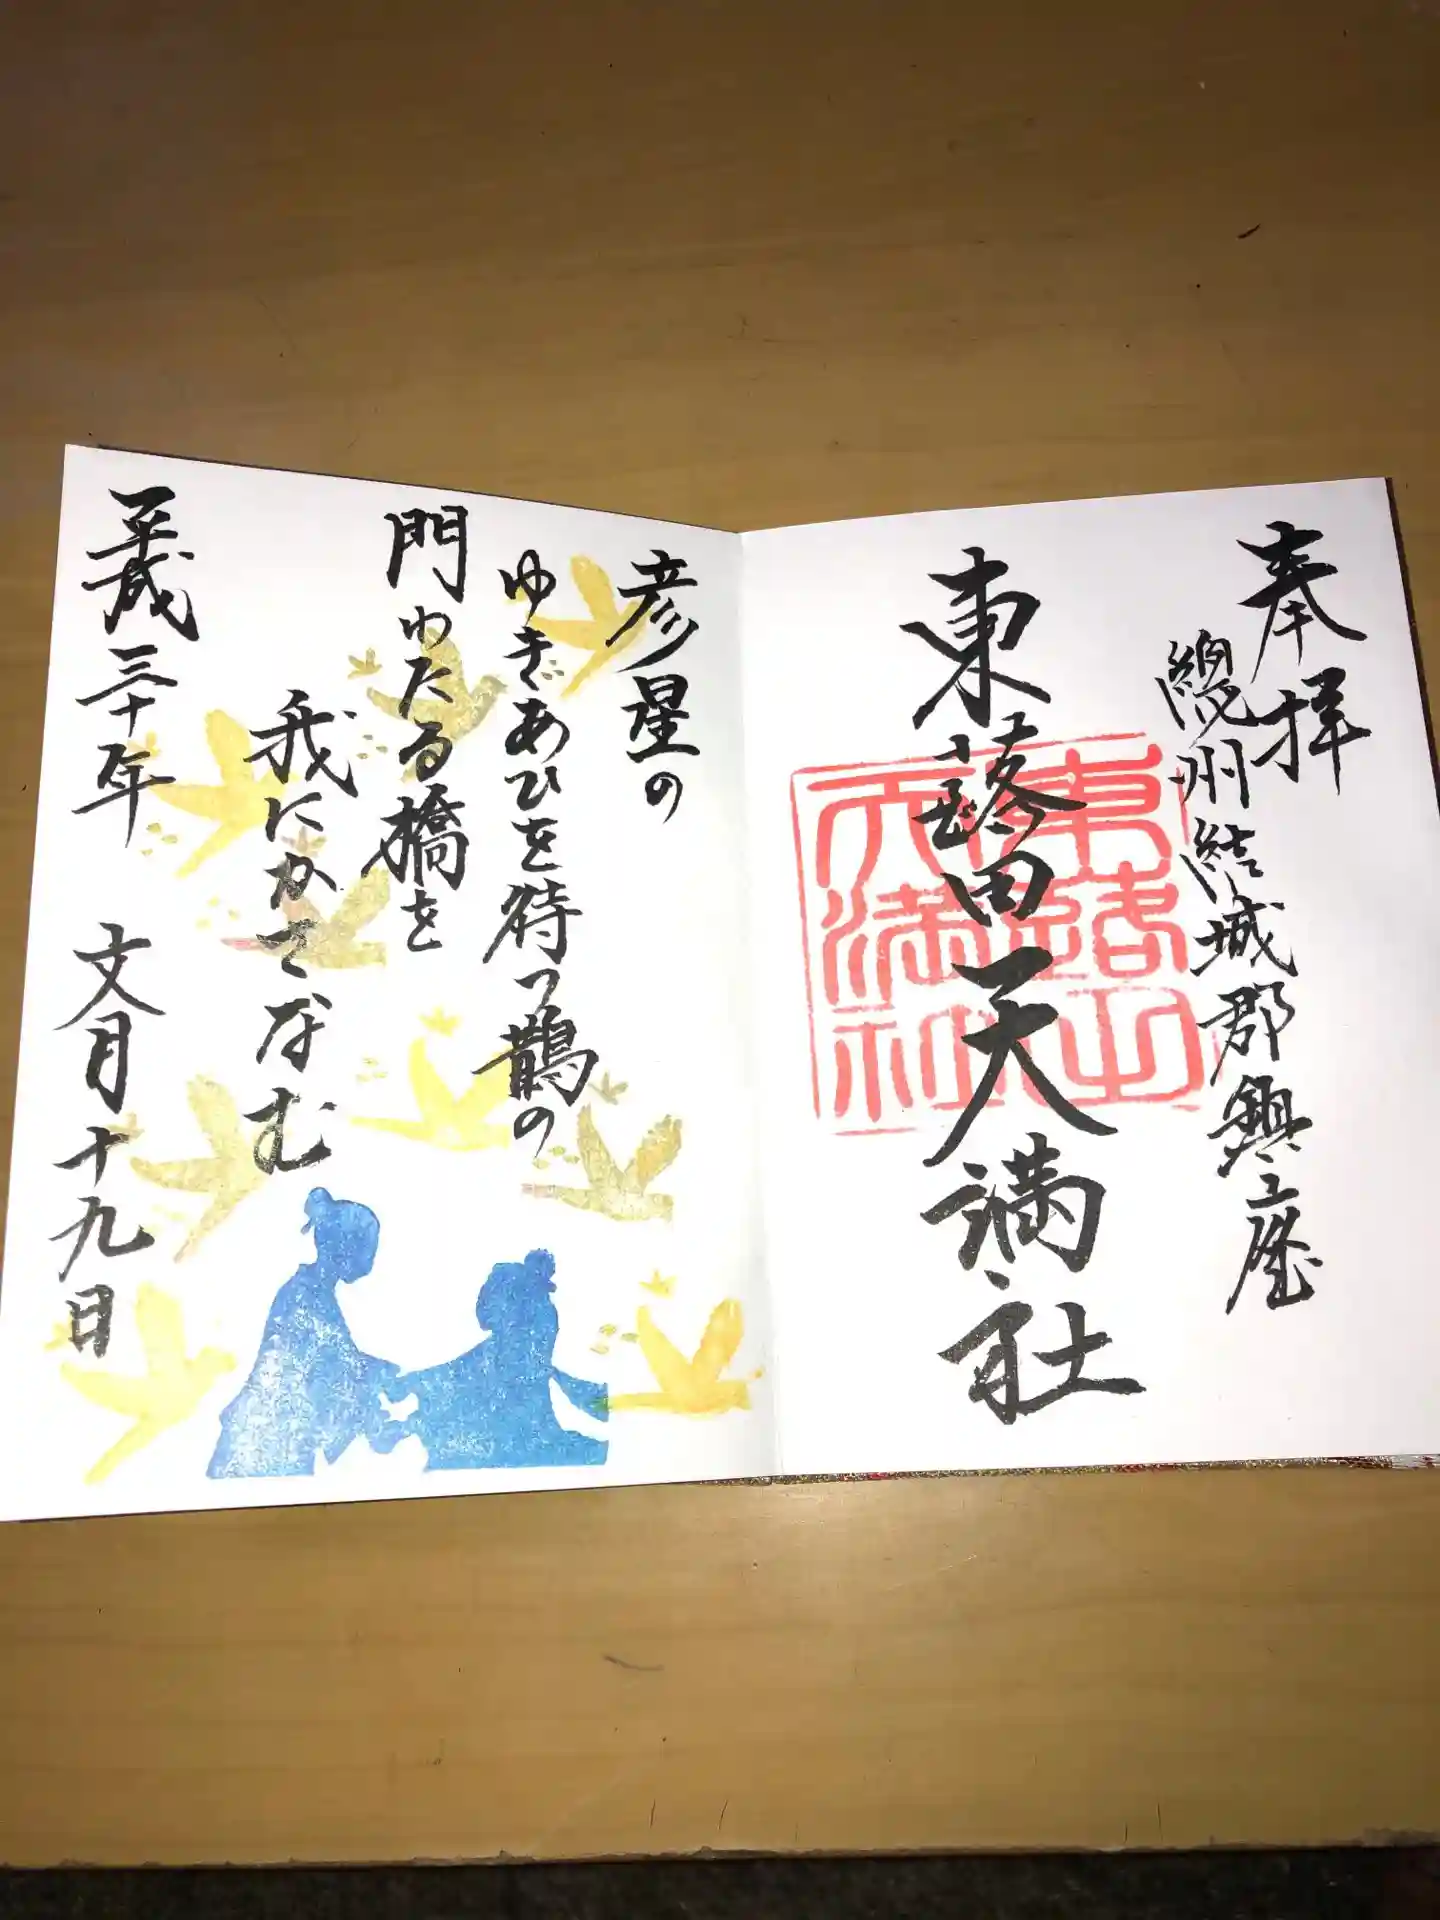 奉拝
總州結城郡鎮座
東蕗田天満社
東路田
天満社
彦星の
ゆきあひを待つ鵲の
門わたる橋を
我にかさなむ
平成三十年 文月十九日